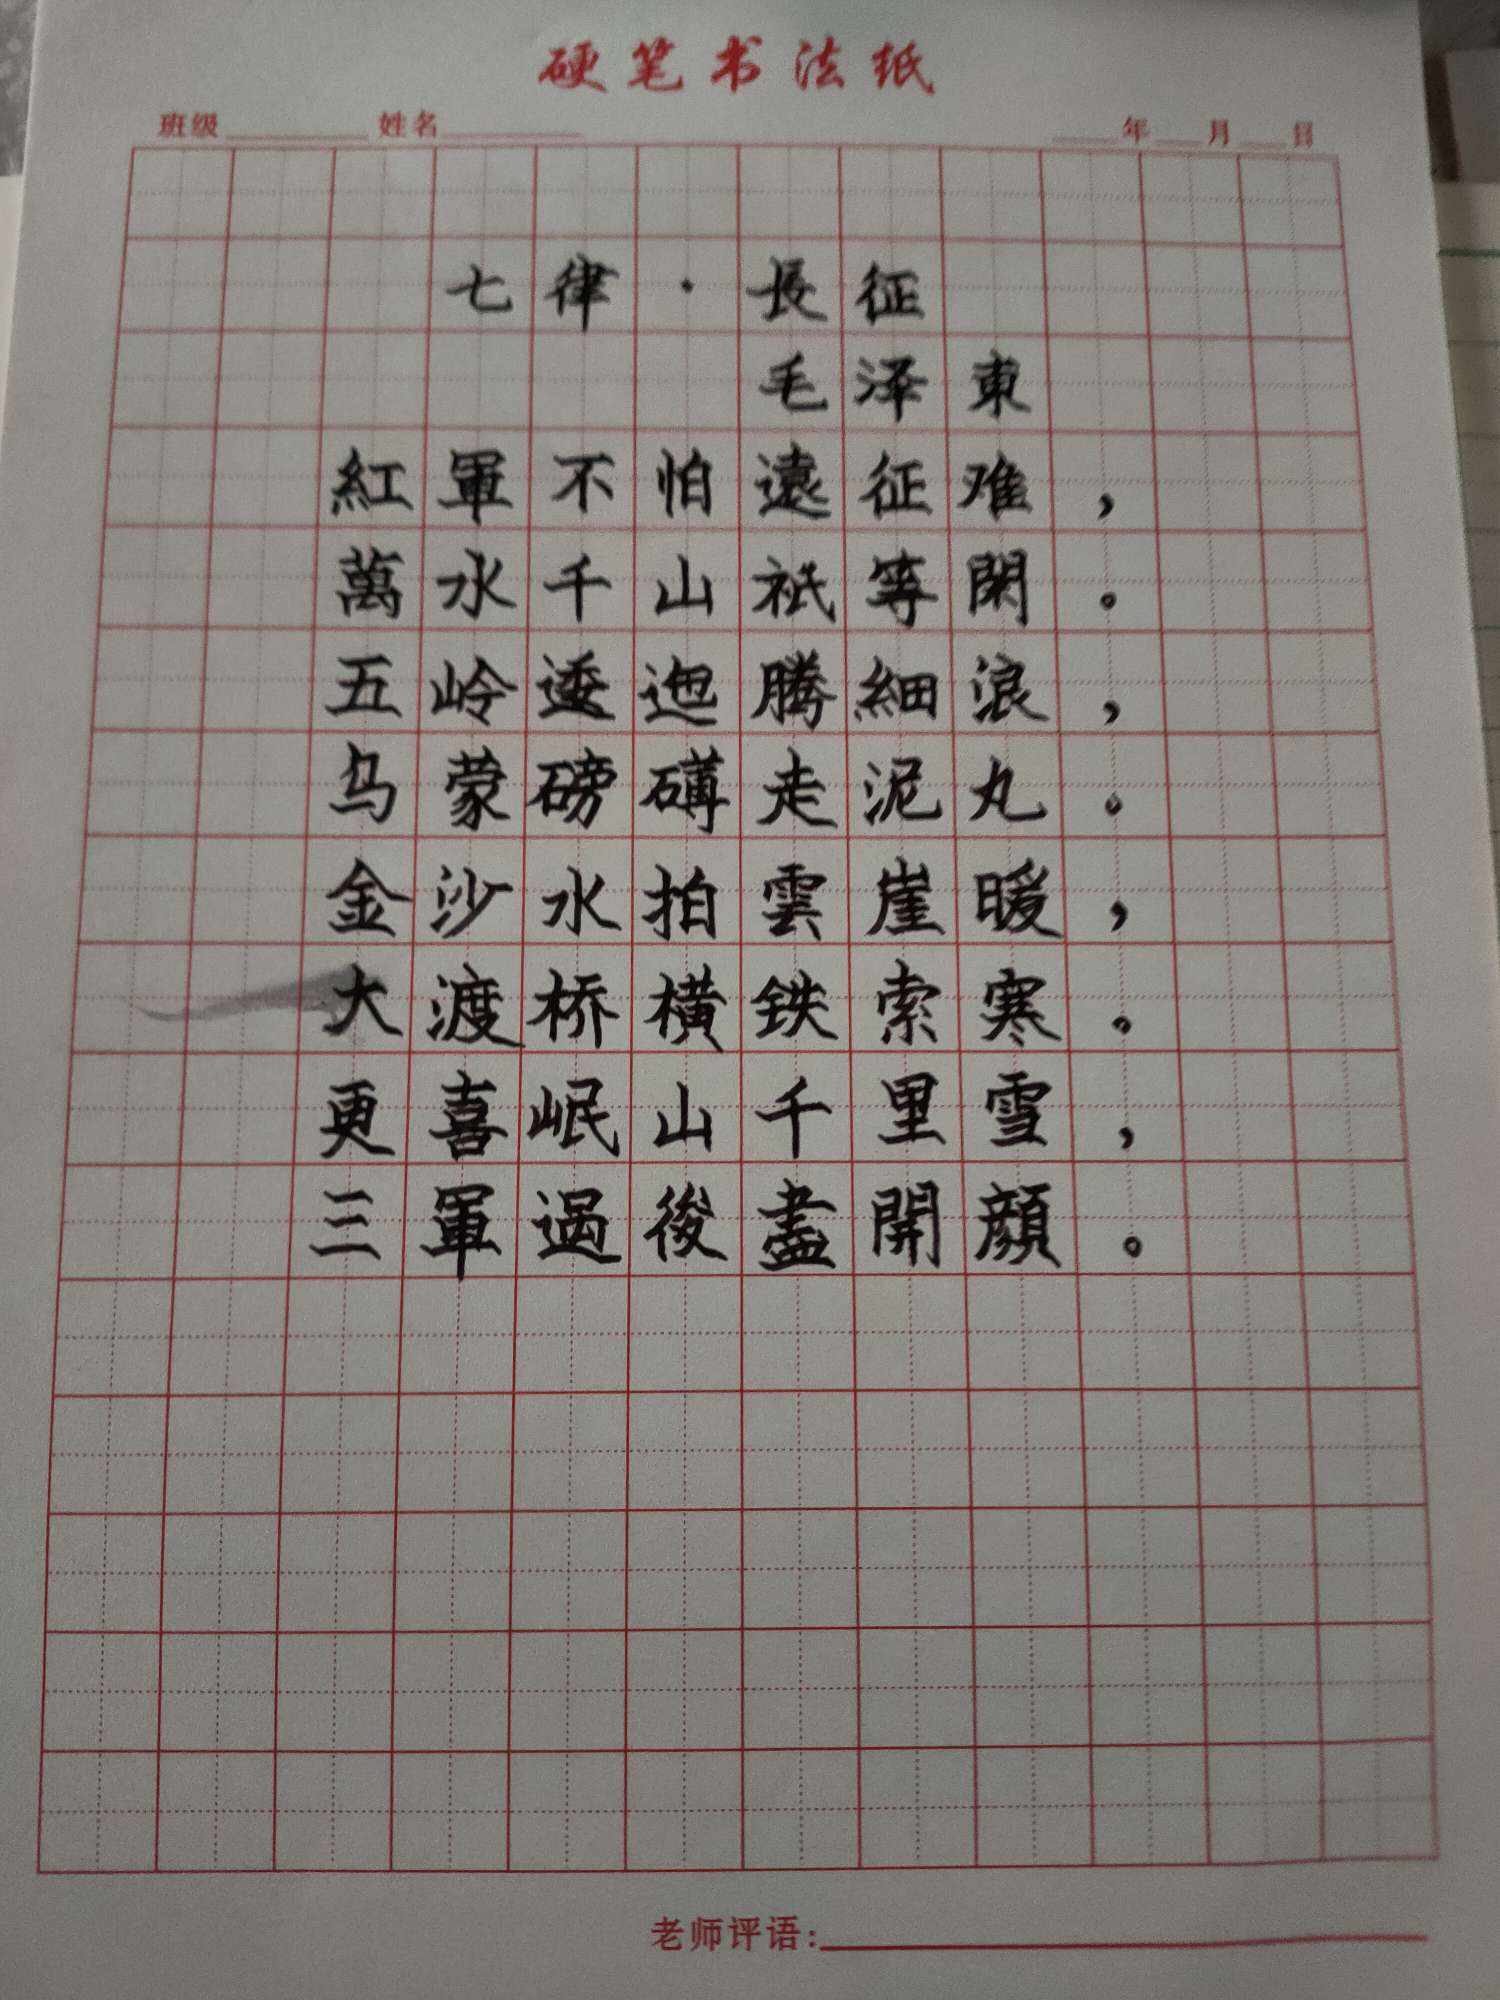 硬笔书法纸
班级 姓名 年 月 日
七律·長征
毛泽東
紅軍不怕遠征难，
萬水千山祇等閑。
五岭逶迤腾細浪，
乌蒙磅礴走泥丸。
金沙水拍雲崖暖，
大渡桥橫铁索寒。
更喜岷山千里雪，
三軍過後盡開顔。
老师评语：